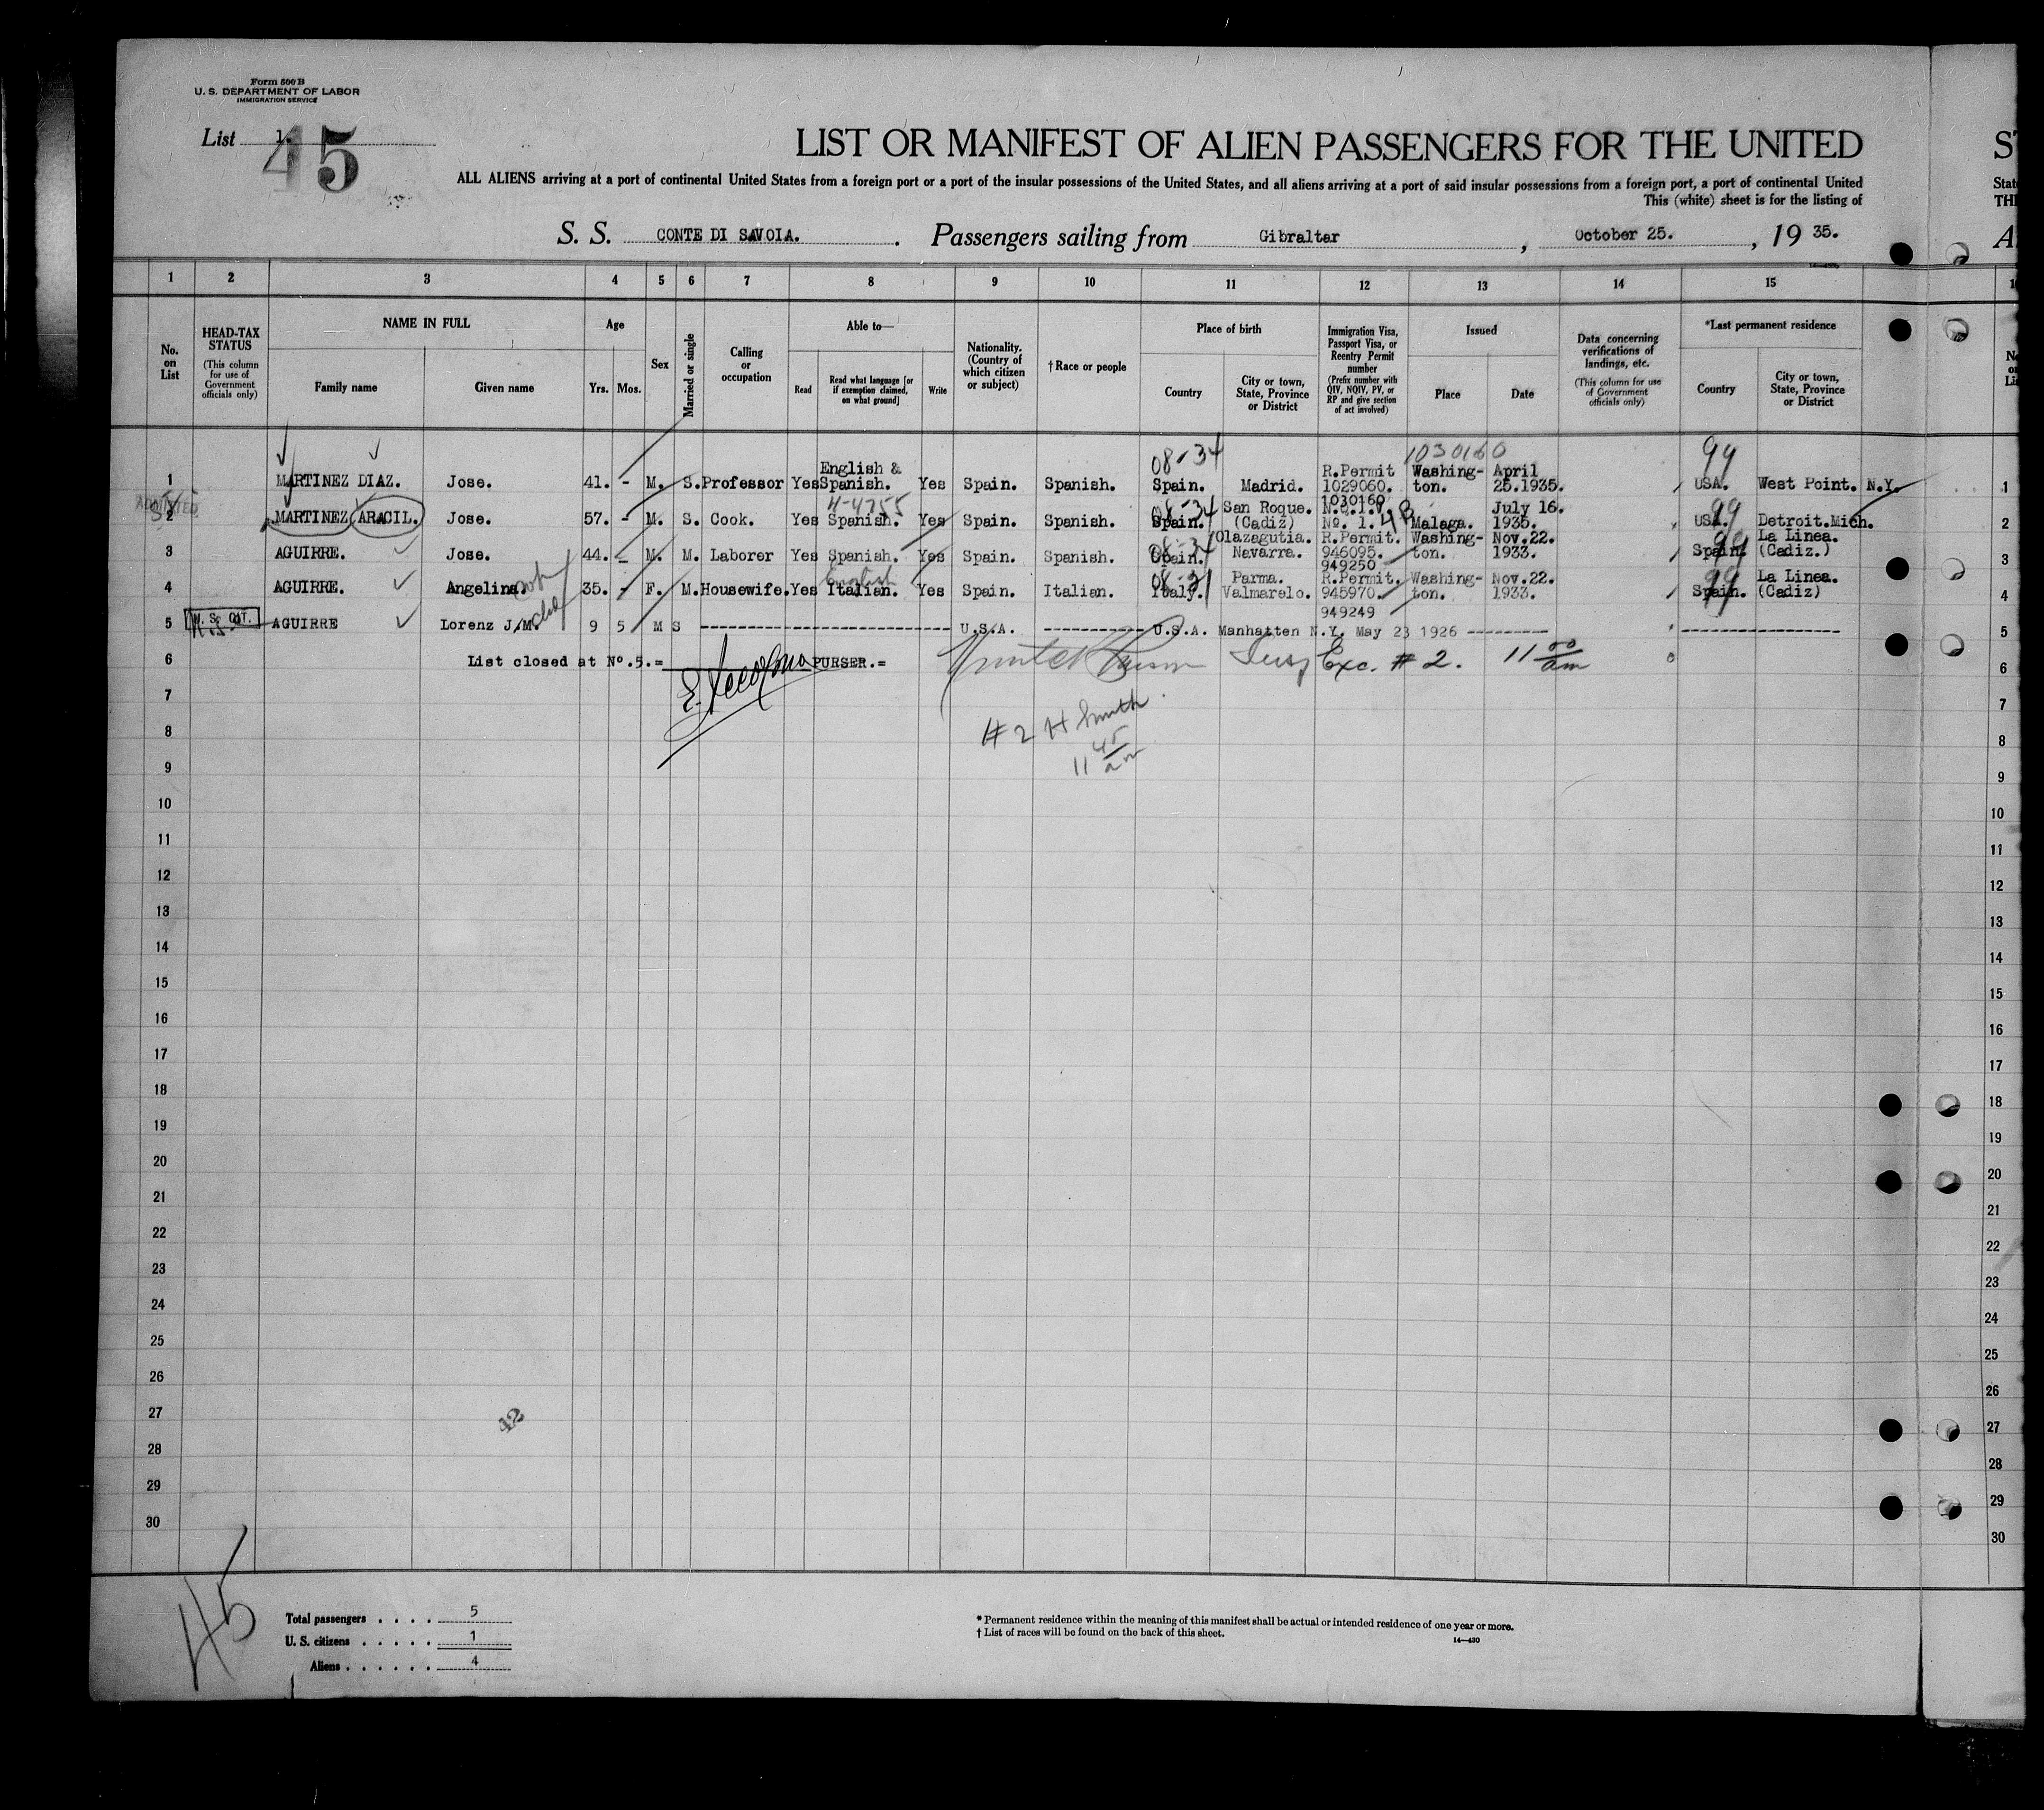 Form 500 B
U. S. DEPARTMENT OF LABOR
IMMIGRATION SERVICE
List 1.
45
LIST OR MANIFEST OF ALIEN PASSENGERS FOR THE UNITED
ALL ALIENS arriving at a port of continental United States from a foreign port or a port of the insular possessions of the United States, and all aliens arriving at a port of said insular possessions from a foreign port, a port of continental United
This (white) sheet is for the listing of
S. S. CONTE DI SAVOIA. . Passengers sailing from Gibraltar , October 25. , 19 35.
1 2 3 4 5 6 7 8 9 10 11 12 13 14 15
No. on List
HEAD-TAX STATUS (This column for use of Government officials only)
NAME IN FULL
Family name Given name
Age
Yrs. Mos.
Sex
Married or single
Calling or occupation
Able to—
Read
Read what language [or if exemption claimed, on what ground]
Write
Nationality. (Country of which citizen or subject)
† Race or people
Place of birth
Country
City or town, State, Province or District
Immigration Visa, Passport Visa, or Reentry Permit number (Prefix number with QIV, NQIV, PV, or RP and give section of act involved)
Issued
Place Date
Data concerning verifications of landings, etc. (This column for use of Government officials only)
*Last permanent residence
Country
City or town, State, Province or District
08-34 1030160 99
1 MARTINEZ DIAZ. Jose. 41. - M. S. Professor Yes English & Spanish. Yes Spain. Spanish. Spain. Madrid. R.Permit 1029060. 1030160 Washing-ton. April 25.1935. USA. West Point. N.Y. 1
ADMITTED
4-4755 08-34 4B 99
2 MARTINEZ ARACIL. Jose. 57. - M. S. Cook. Yes Spanish. Yes Spain. Spanish. Spain. San Roque. (Cadiz) N.Q.I.V. Nº. 1. Malaga. July 16. 1935. USA. Detroit.Mich. 2
08-34 99
3 AGUIRRE. Jose. 44. - M. M. Laborer Yes Spanish. Yes Spain. Spanish. Spain. Olazagutia. Navarra. R.Permit. 946095. 949250 Washing-ton. Nov.22. 1933. Spain. La Linea. (Cadiz.) 3
English 08-21 99
4 AGUIRRE. Angelina. 35. - F. M. Housewife. Yes Italian. Yes Spain. Italian. Italy. Parma. Valmarelo. R.Permit. 945970. 949249 Washing-ton. Nov.22. 1933. Spain. La Linea. (Cadiz) 4
U. S. CIT.
5 AGUIRRE Lorenz J.M. 9 5 M S U.S.A. U.S.A. Manhatten N.Y. May 23 1926 5
6 List closed at Nº.5.= PURSER.= Insp Exc. # 2. 11 00 am 6
7 7
# 2 H Smith
8 8
11 45 am
9 9
10 10
11 11
12 12
13 13
14 14
15 15
16 16
17 17
18 18
19 19
20 20
21 21
22 22
23 23
24 24
25 25
26 26
27 27
42
28 28
29 29
30 30
45
Total passengers . . . . 5
U. S. citizens . . . . . 1
Aliens . . . . . . 4
* Permanent residence within the meaning of this manifest shall be actual or intended residence of one year or more.
† List of races will be found on the back of this sheet.
14—430